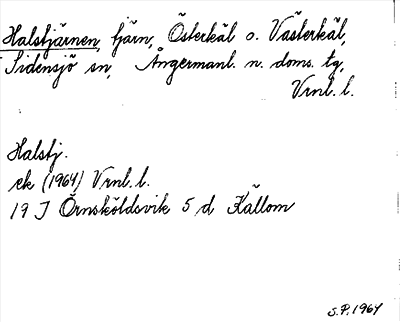 Halstjärnen, tjärn, Österkäl o. Västerkäl,
Sidensjö sn, Ångermanl. n. doms. tg,
Vrnl. l.
Halstj.
ek (1964) Vrnl. l.
19 J Örnsköldsvik 5 d Källom
S.P. 1964